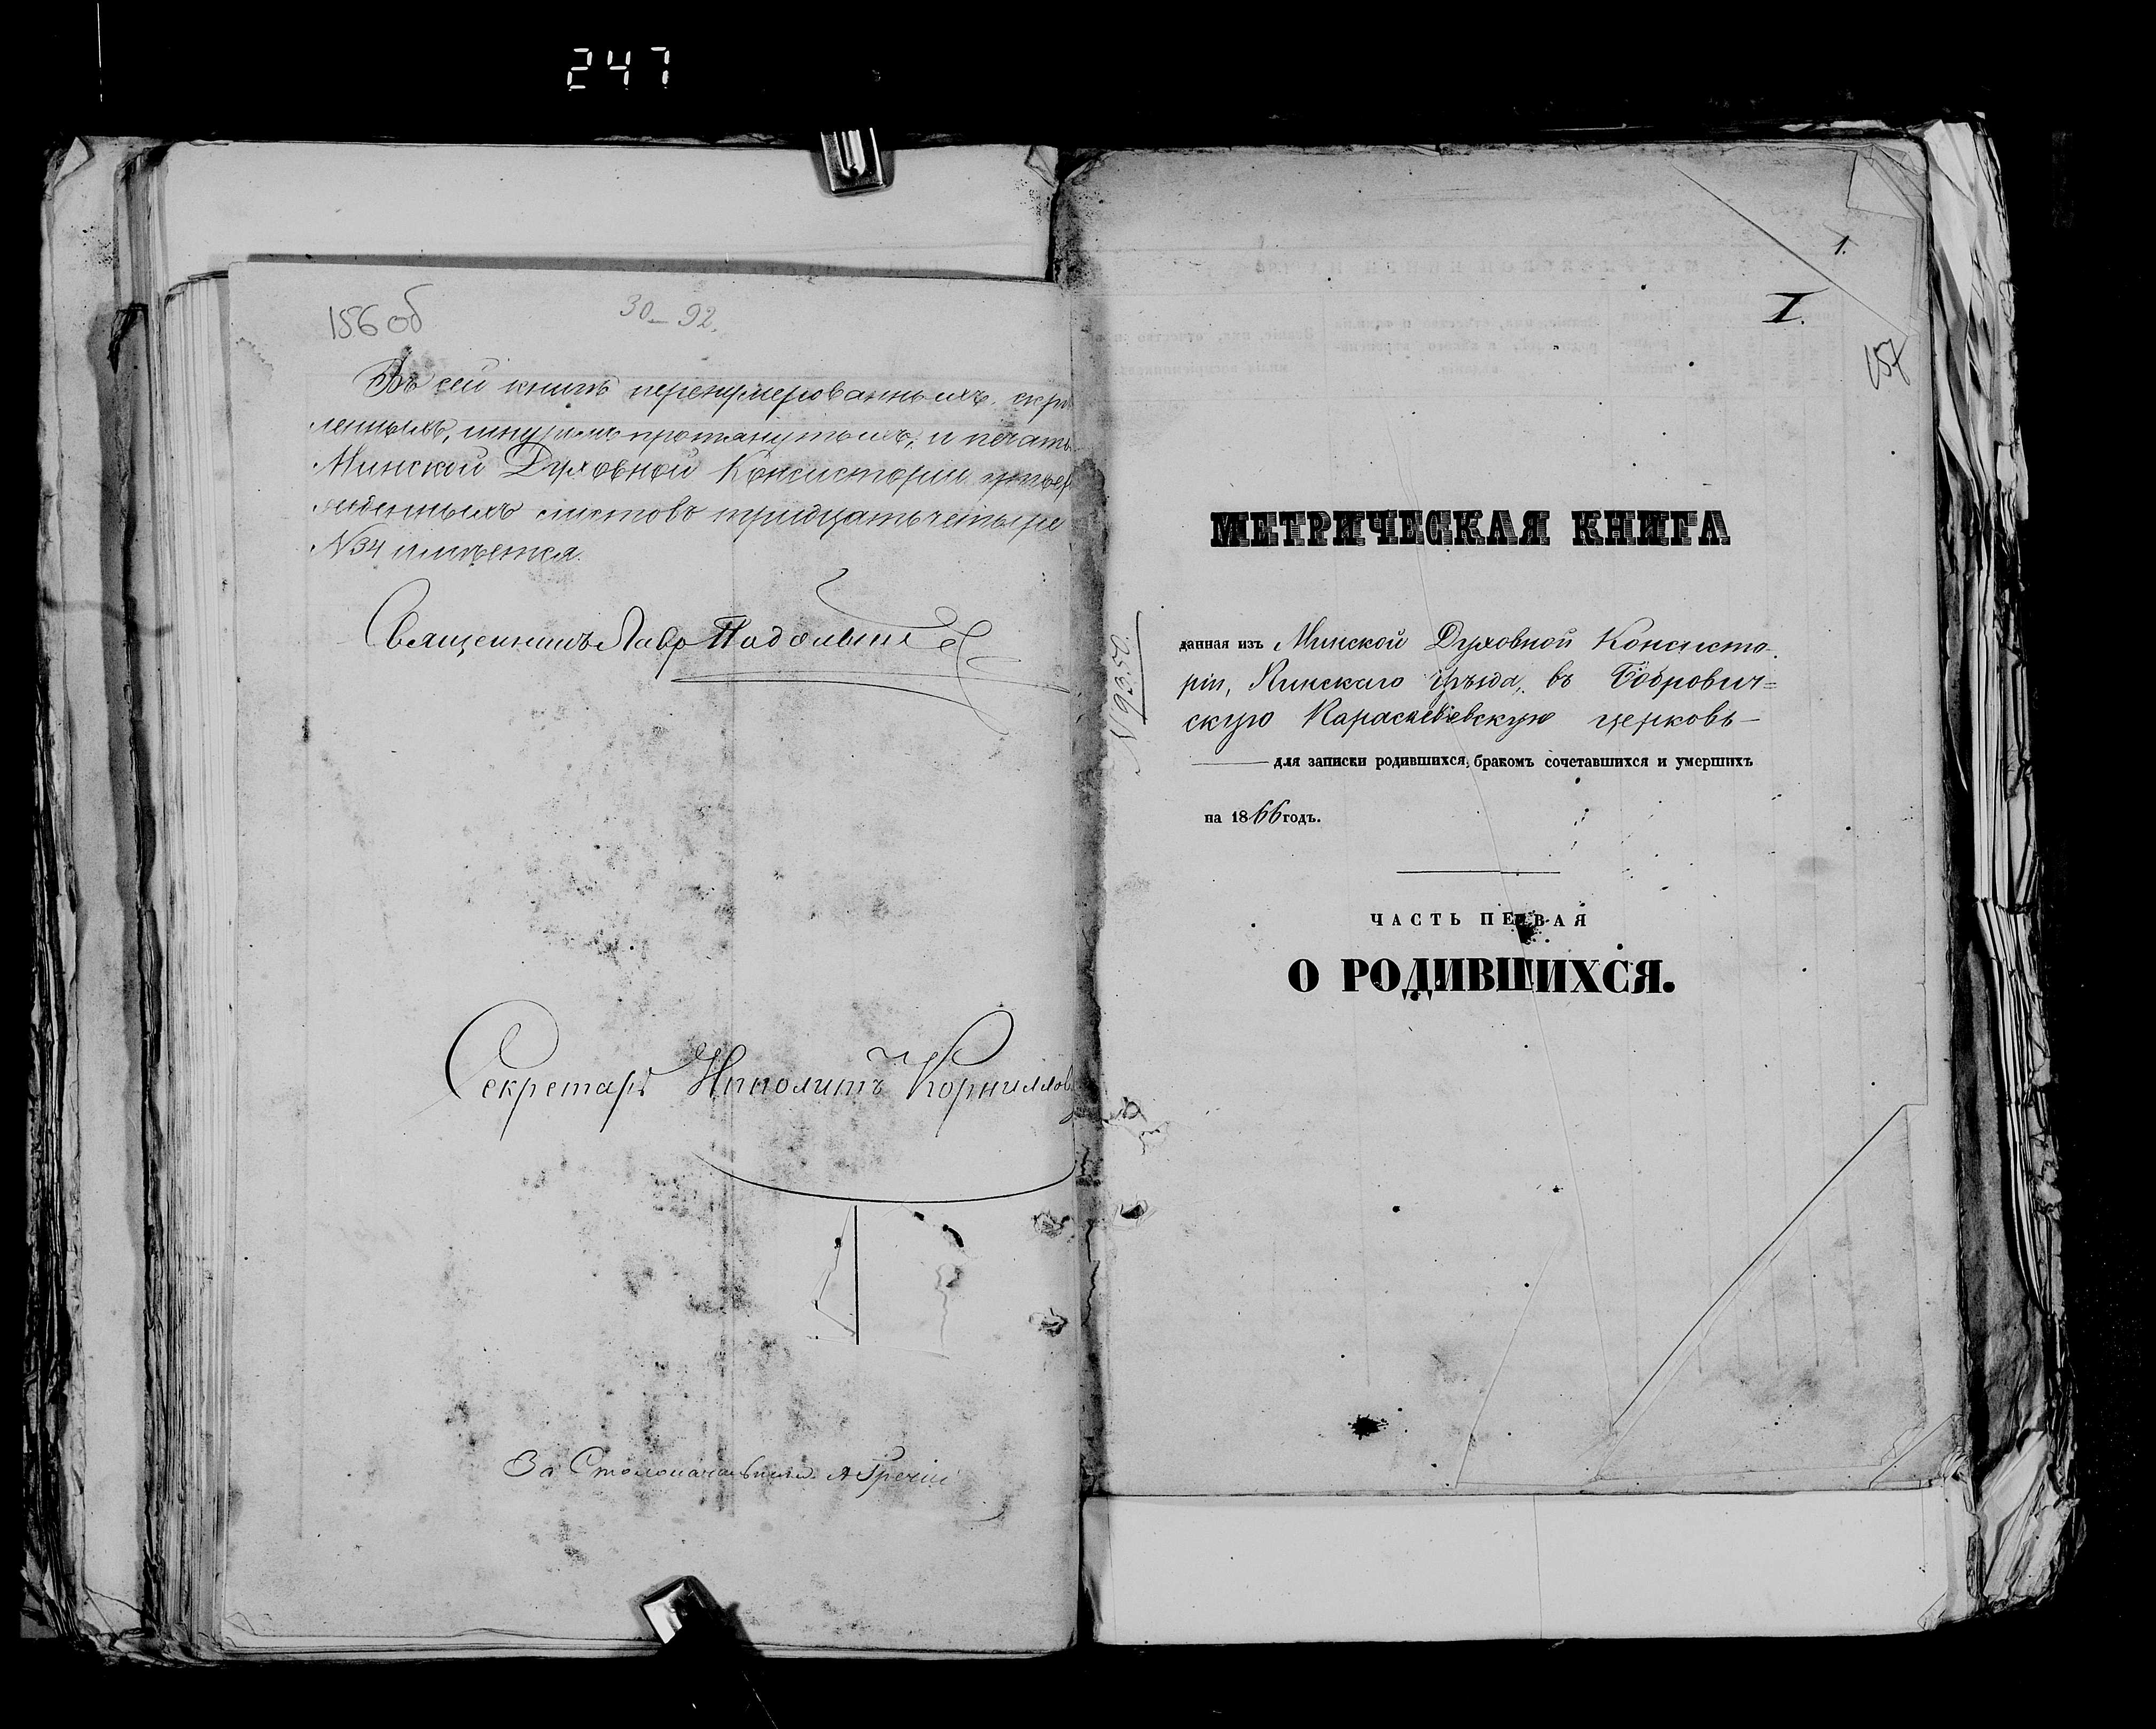 247
156 об
30–92.
Въ сей книгѣ перенумерованныхъ, скрѣ
пленныхъ, шнуромъ протянутыхъ, и печатью
Минской Духовной Консисторіи утвер
жденныхъ листовъ тридцать четыре
№34 имѣется.
Священникъ Лавр
Секретарь Ипполитъ Корниллов
За Столоначальника
1.
I.
157
МЕТРИЧЕСКАЯ КНИГА
№ 9350.
данная изъ Минской Духовной Консисто-
ріи, Пинскаго уѣзда, въ Бобрович=
скую Параскевіевскую церковь
для записки родившихся, бракомъ сочетавшихся и умершихъ
на 1866 годъ.
ЧАСТЬ ПЕРВАЯ
О РОДИВШИХСЯ.